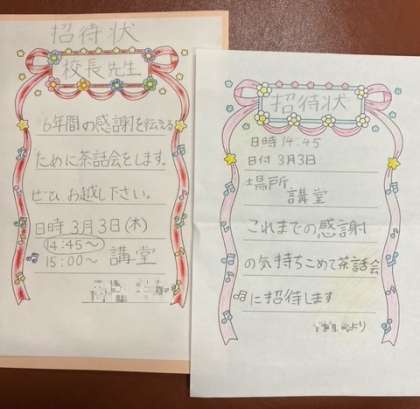 招待状
校長先生
6年間の感謝を伝える
ために茶話会をします。
ぜひお越し下さい。
日時3月3日(木)
14:45～
15:00～ 講堂
招待状
日時14:45
日付3月3日
場所
講堂
これまでの感謝
の気持ちこめて茶話会
に招待します
より